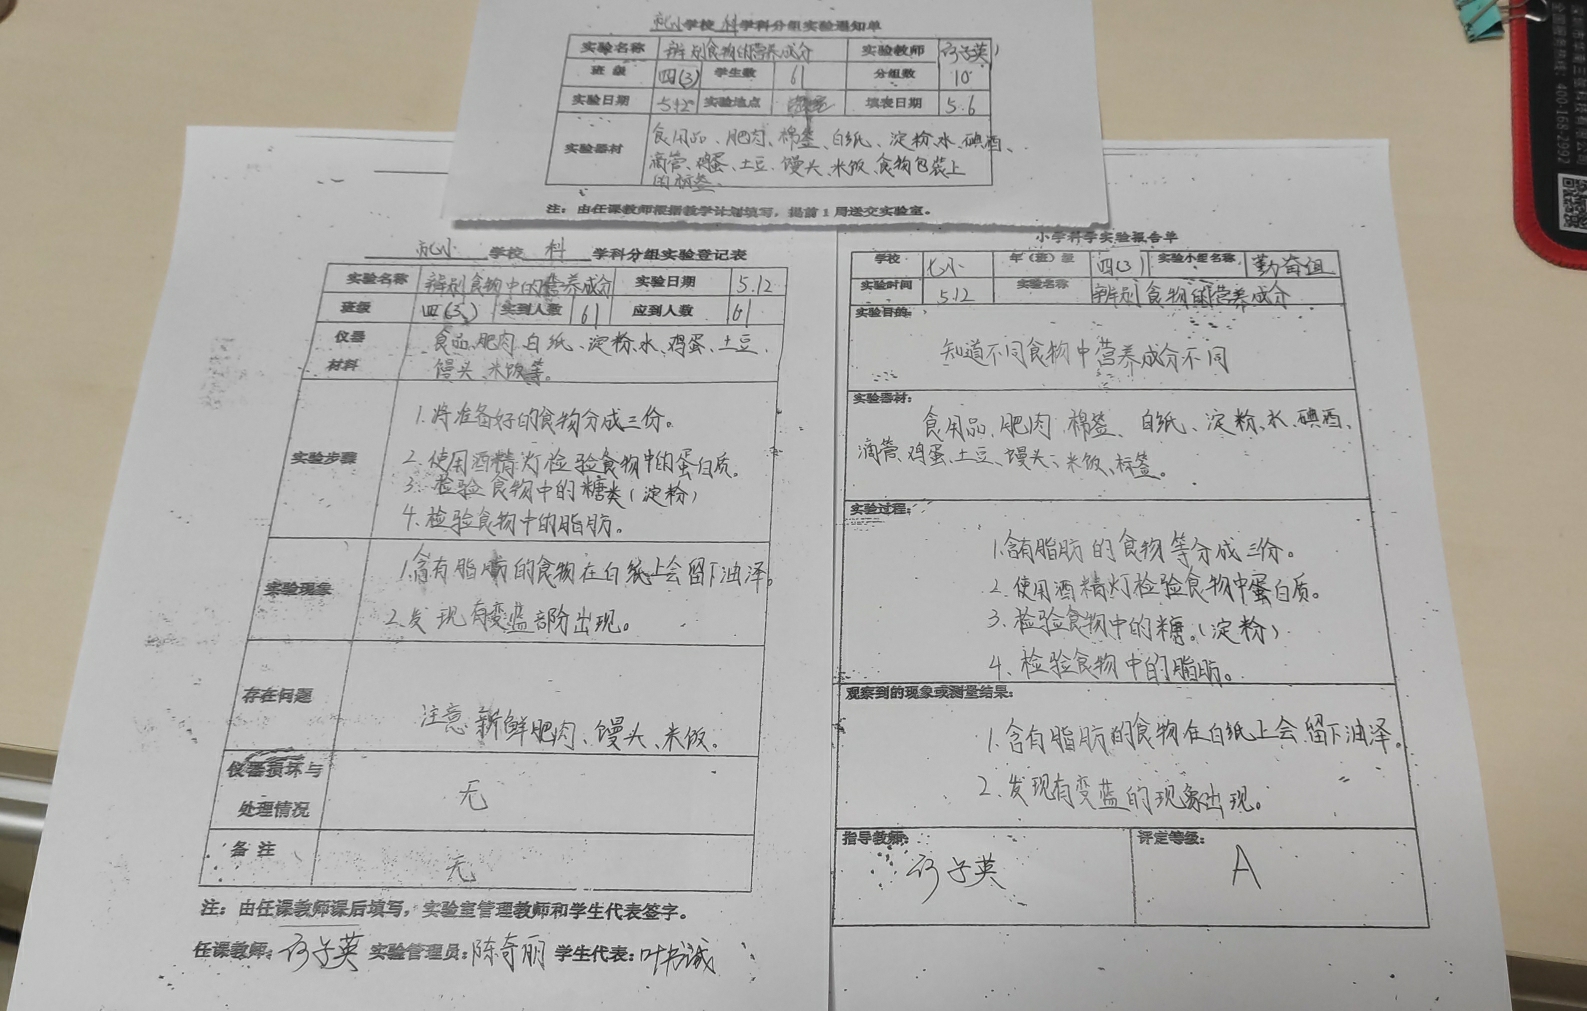 学校 科学科分组实验通知单
实验名称 辨别食物的营养成分 实验教师
班级 四(3) 学生数 61 分组数 10
实验日期 5.12 实验地点 填表日期 5.6
实验器材 食用品、肥肉、棉签、白纸、淀粉、水、碘酒、
滴管、鸡蛋、土豆、馒头、米饭、食物包装上
的标签。
注：由任课教师根据教学计划填写，提前1周送交实验室。
学校 科 学科分组实验登记表
实验名称 辨别食物中的营养成分 实验日期 5.12
班级 四(3) 实到人数 61 应到人数 61
仪器 食品、肥肉、白纸、淀粉、水、鸡蛋、土豆、
材料 馒头、米饭等。
1.将准备好的食物分成三份。
实验步骤 2.使用酒精灯检验食物中的蛋白质。
3.检验食物中的糖类(淀粉)
4.检验食物中的脂肪。
实验现象 1.含有脂肪的食物在白纸上会留下油泽。
2.发现有变蓝部分出现。
存在问题 注意:新鲜肥肉、馒头、米饭。
仪器损坏与
处理情况 无
备注 无
注：由任课教师课后填写，实验室管理教师和学生代表签字。
任课教师: 子英 实验管理员:陈奇丽 学生代表:叶书诚
小学科学实验报告单
学校 七小 年（班）级 四(3) 实验小组名称 勤奋组
实验时间 5.12 实验名称 辨别食物的营养成分
实验目的：
知道不同食物中营养成分不同
实验器材：
食用品、肥肉、棉签、白纸、淀粉、水、碘酒、
滴管、鸡蛋、土豆、馒头、米饭、标签。
实验过程：
1.含有脂肪的食物等分成三份。
2.使用酒精灯检验食物中蛋白质。
3.检验食物中的糖。(淀粉)
4.检验食物中的脂肪。
观察到的现象或测量结果：
1.含有脂肪的食物在白纸上会留下油泽。
2.发现有变蓝的现象出现。
指导教师： 子英 评定等级： A
400-168-2992